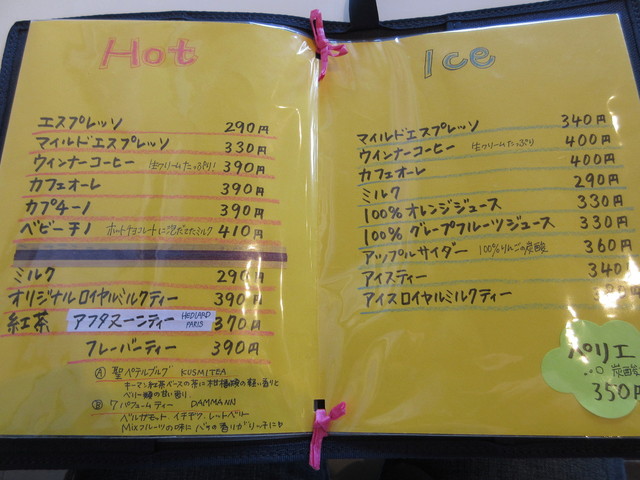 Hot
エスプレッソ 290円
マイルドエスプレッソ 330円
ウィンナーコーヒー 生クリームたっぷり! 390円
カフェオーレ 390円
カプチーノ 390円
ベビーチノ ホットチョコレートに泡だてたミルク 410円
ミルク 290円
オリジナルロイヤルミルクティー 390円
紅茶 アフタヌーンティー HEDIARD PARIS 370円
フレーバーティー 390円
Ⓐ 聖ペテルブルグ KUSMITEA
キーマン紅茶ベースの茶に柑橘類の軽い香りと
ベリー類の甘い香り
Ⓑ 7パフュームティー DAMMANN
ベルガモット、イチヂク、レッドベリー
Mixフルーツの味に バラの香りが
Ice
マイルドエスプレッソ 340円
ウィンナーコーヒー 生クリームたっぷり 400円
カフェオーレ 400円
ミルク 290円
100% オレンジジュース 330円
100% グレープフルーツジュース 330円
アップルサイダー 100%りんごの炭酸 360円
アイスティー 340円
アイスロイヤルミルクティー 円
ペリエ
炭酸
350円